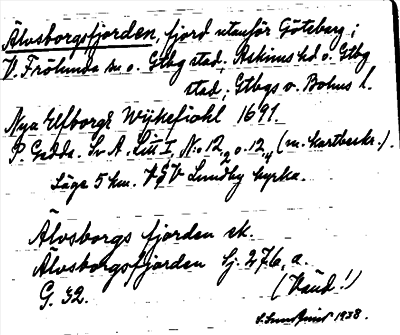 Älvsborgsfjorden, fjord utanför Göteborg i
V. Frölunda sn o. Gtbg stad, Askims hd o. Gtbg
stad, Gtbgs o. Bohus l.
Nya Elfborgs Wijkefiohl 1691.
P. Gedda. Sv A. Litt I, No 12,2 o. 12,4 (m. kartbeskr.).
Läge 5 km. VSV Lundby kyrka.
Älvsborgs fjorden ek.
Älvsborgsfjorden Gj. 276, a.
G. 32. (Känd!)
1938.